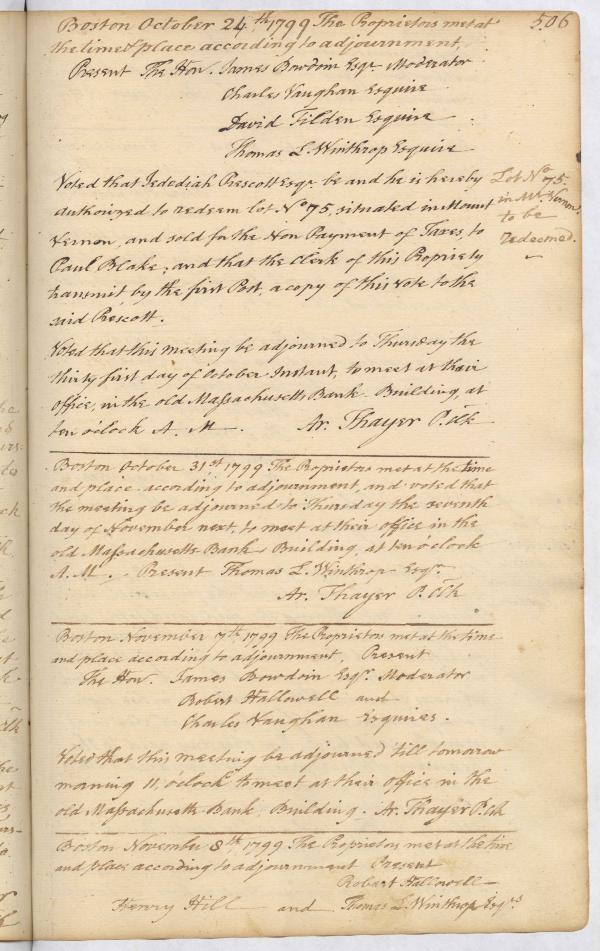 506
Boston October 24th, 1799 The Proprietors met at
the time & place according to adjournment,
Present The Hon. James Bowdoin Esqr. Moderator
Charles Vaughan Esquire
David Tilden Esquire
Thomas L. Winthrop Esquire
Voted that Jedediah Prescott Esqr. be and he is hereby
authorized to redeem lot No 75, situated in Mount
Vernon, and sold for the Non Payment of Taxes to
Paul Blake; and that the Clerk of this Propriety
transmit by the first Post, a copy of this vote to the
said Prescott.
Lot No 75
in Mt. Vernon
to be
redeemed.
Voted that this meeting be adjourned to Thursday the
thirty first day of October Instant, to meet at their
office, in the old Massachusetts Bank Building, at
ten o'clock A. M. Ar. Thayer P. Clk
Boston October 31st 1799 The Proprietors met at the time
and place according to adjournment, and voted that
the meeting be adjourned to Thursday the seventh
day of November next, to meet at their office in the
old Massachusetts Bank Building, at ten o'clock
A. M. Present Thomas L. Winthrop Esqr.
Ar. Thayer P. Clk
Boston November 7th, 1799 The Proprietors met at the time
and place according to adjournment, Present
The Hon. James Bowdoin Esqr. Moderator
Robert Hallowell and
Charles Vaughan Esquires.
Voted that this meeting be adjourned 'till tomorrow
morning 11, o'clock to meet at their office in the
old Massachusetts Bank Building. Ar. Thayer P. Clk
Boston November 8th, 1799 The Proprietors met at the time
and place according to adjournment Present
Robert Hallowell
Henry Hill and Thomas L. Winthrop Esqrs